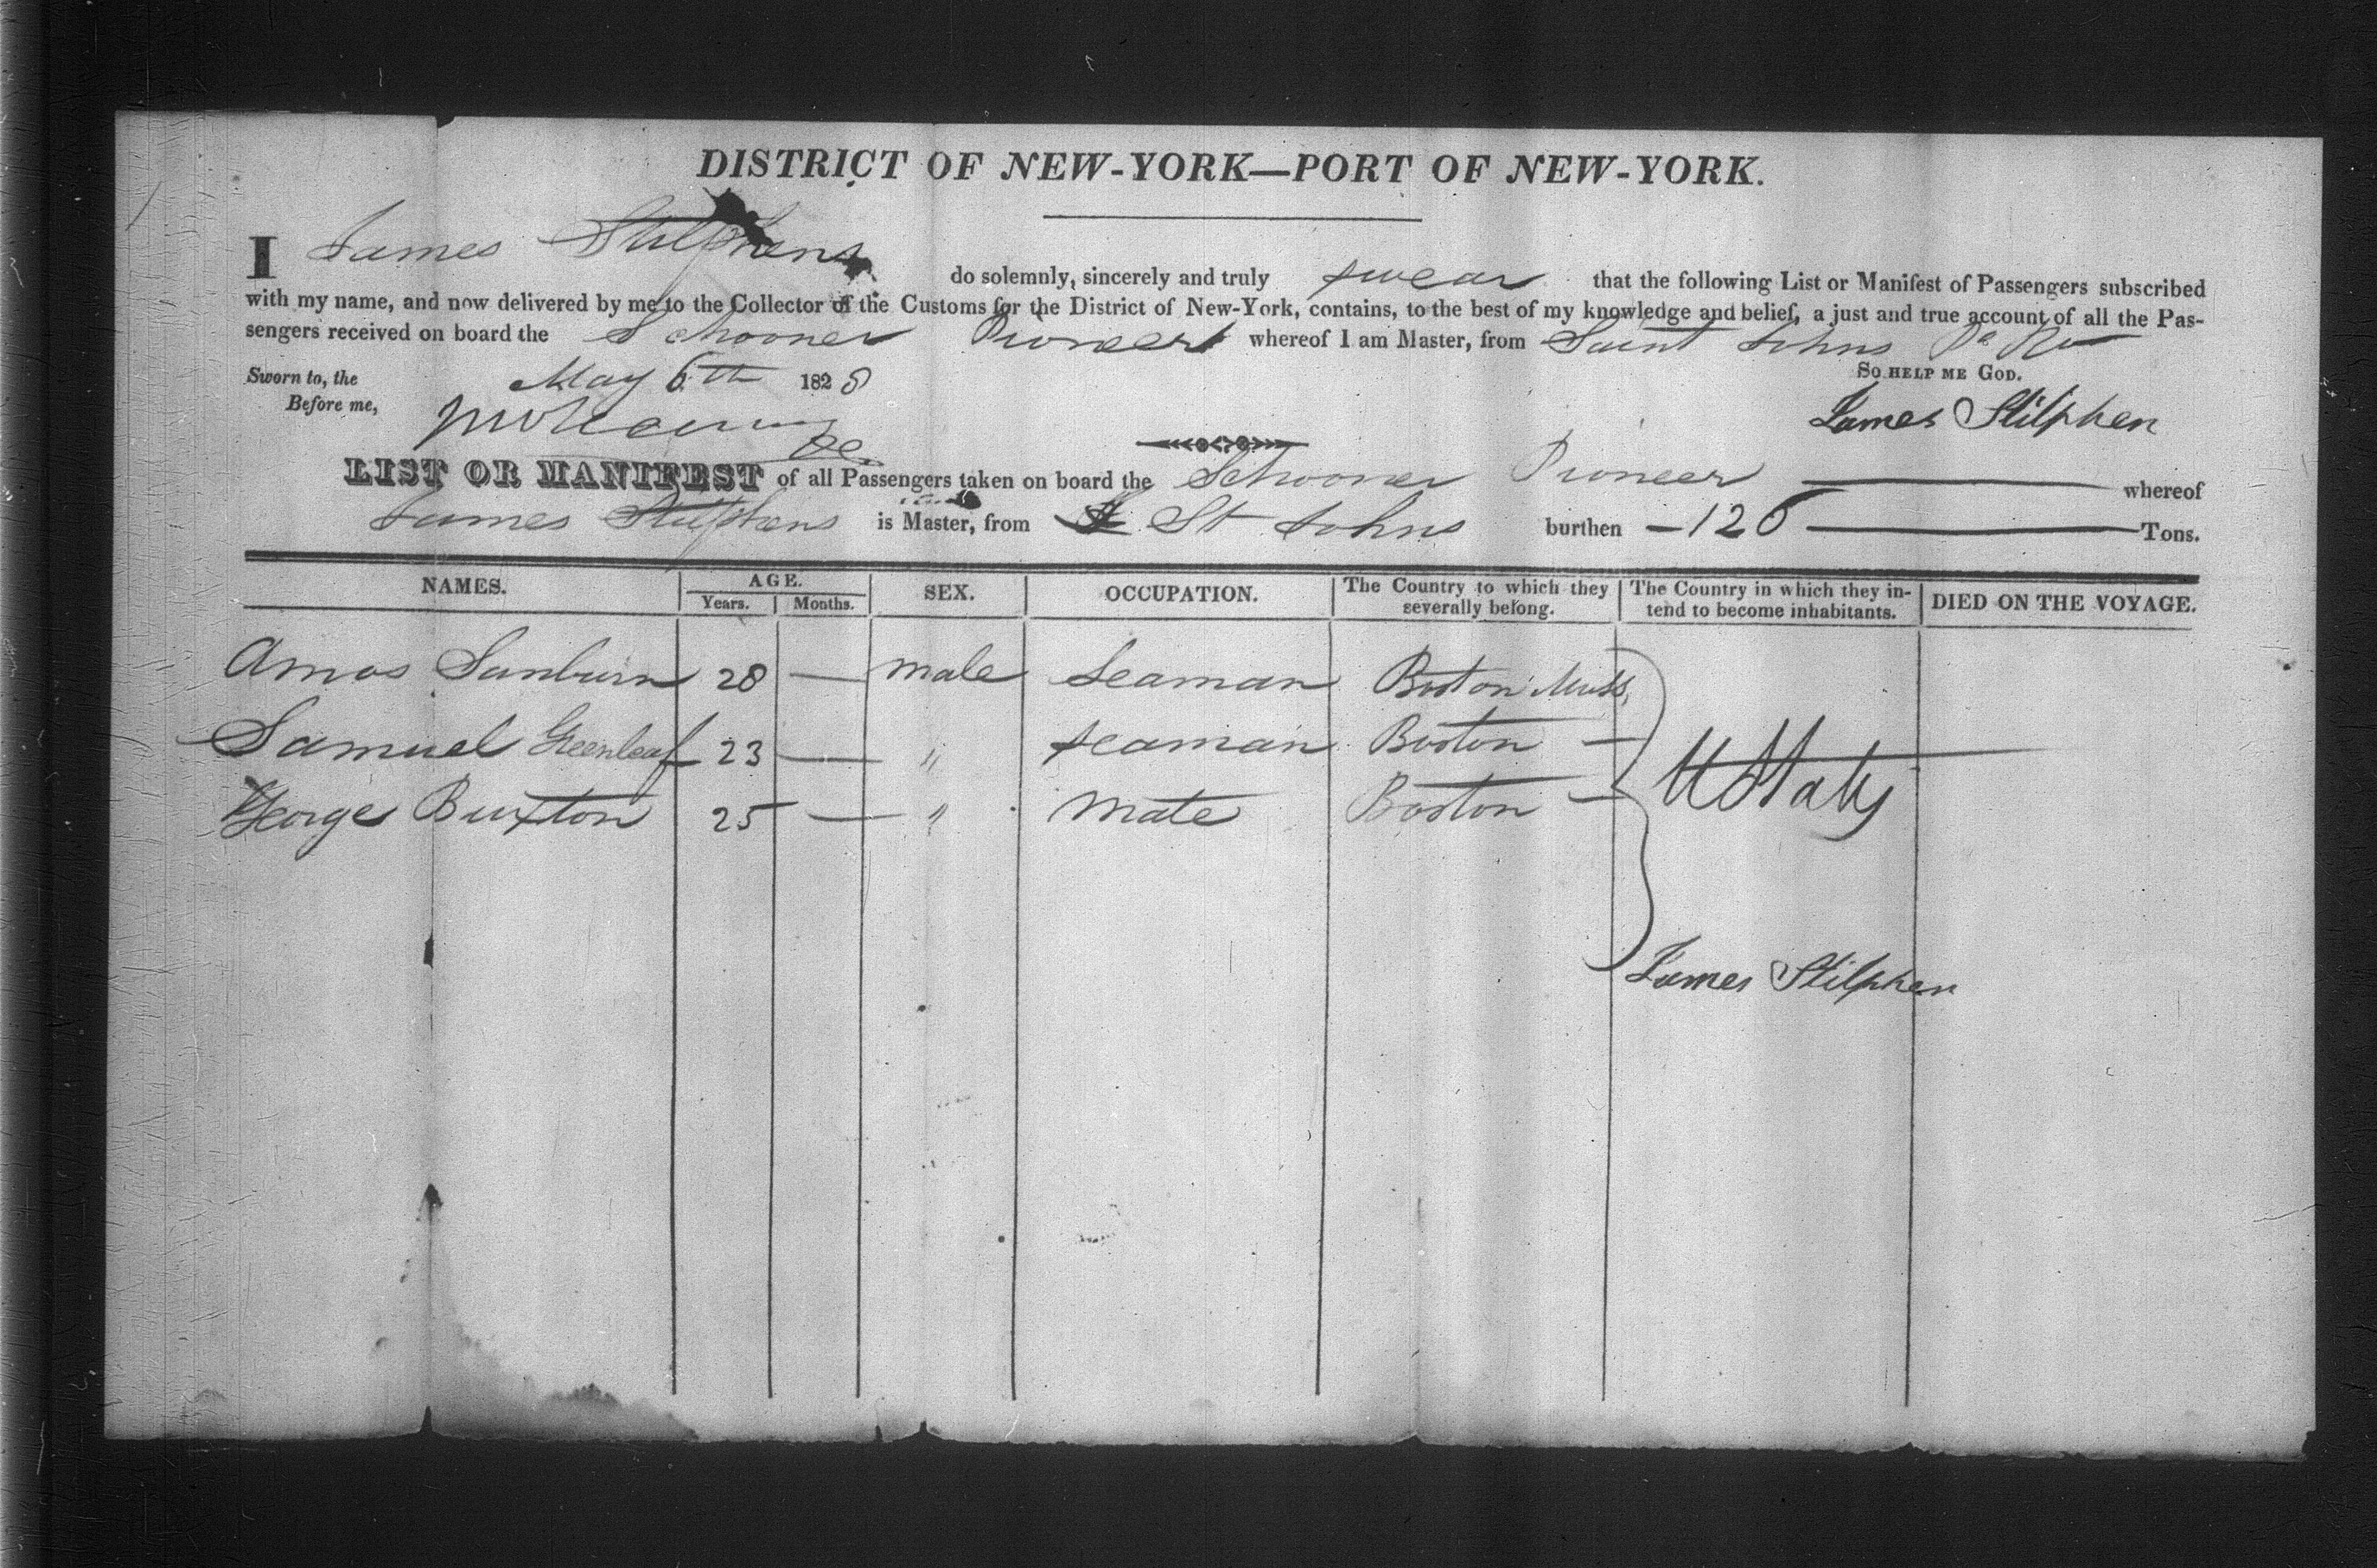 DISTRICT OF NEW-YORK—PORT OF NEW-YORK.
I James Stilphens do solemnly, sincerely and truly swear that the following List or Manifest of Passengers subscribed
with my name, and now delivered by me to the Collector of the Customs for the District of New-York, contains, to the best of my knowledge and belief, a just and true account of all the Pas-
sengers received on board the Schooner Pioneer whereof I am Master, from Saint Johns
Sworn to, the May 6th 1828 So HELP ME GOD.
Before me,
James Stilphen
LIST OR MANIFEST of all Passengers taken on board the Schooner Pioneer whereof
James Stilphens is Master, from St Johns burthen 126 Tons.
NAMES. AGE. SEX. OCCUPATION. The Country to which they severally belong. The Country in which they in-tend to become inhabitants. DIED ON THE VOYAGE.
Years. Months.
Amos Sanburn 28 — male Seaman Boston Mass,
Samuel Greenleaf 23 — " seaman Boston —
George Buxton 25 — " Mate Boston —
U States
James Stilphen